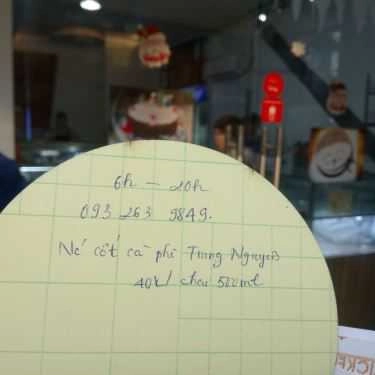 6h - 20h
093 263 9849.
Nước cốt cà phê Trung Nguyên
40k/ chai 500ml